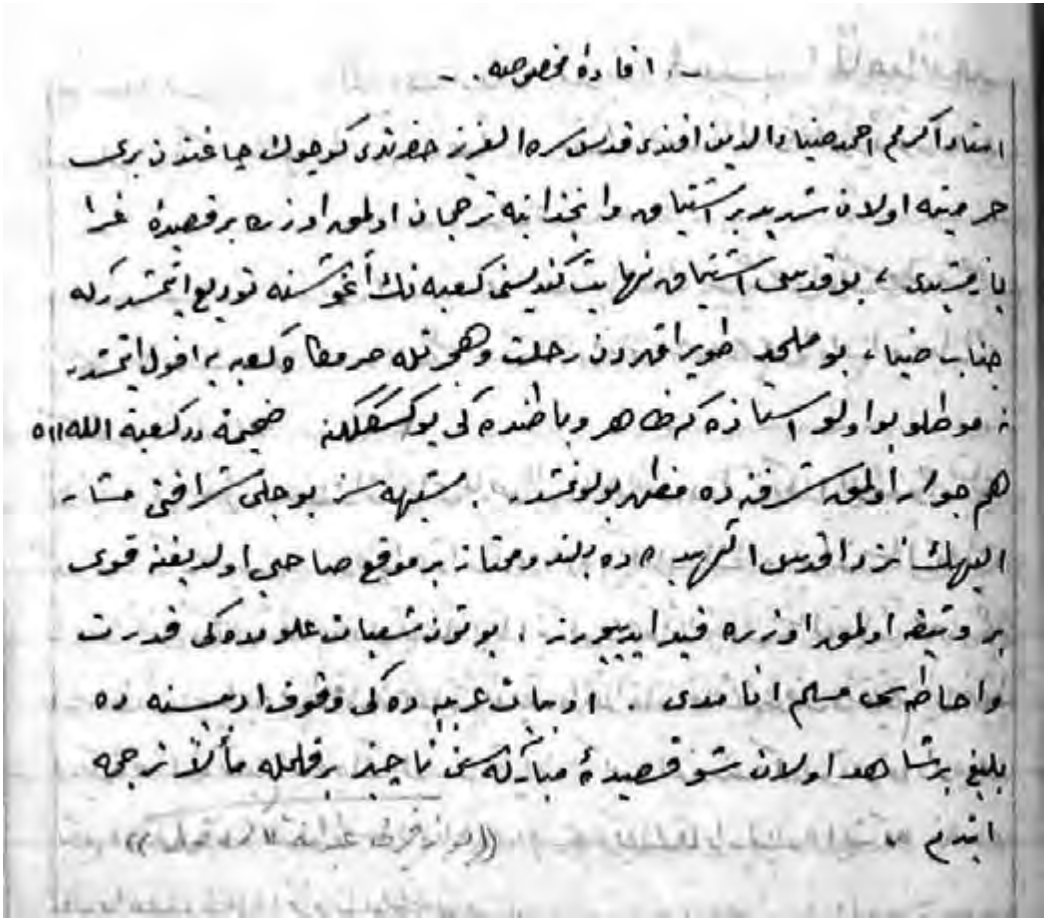 افادۀ مخصوصه . ـ
استاد اكرمم احمد ضياء الدين افندى قدس سره العزيز حضرتلرى كوچوك چاغندن برى
حرمينه اولان شديد بر اشتياق وانجذابنه ترجمان اولمق اوزره بر قصيدۀ غرا
يازمشدى ، بو قدسى اشتياق نهايت كنديسنى كعبه نك آغوشنه توديع ايتمشدركه
جناب ضياء ، بو طوپراقدن رحلت وهجرتله حرمگاه كعبه يه افول ايتمشدر
نه موطلو بو اولو استاذه كه ظاهر وباطنده كى يوكسكلگنه ضميمة در كعبة الله ااه
هم جوار اولمق شرفنه ده مظهر بولونمشدر . شبهه سز بو جلى شرافتى مشار
اليهك نزد اقدس الهيده ده بلند وممتاز بر موقع صاحبى اولديغنه قوى
بر وثيقه اولمق اوزره قيد ايدييورز . بوتون شعبات علومده كى قدرت
واحاطه سى مسلم انامدى . ادبيات عربيه ده كى وقوف اديبسنه ده
بليغ بر شاهد اولان شو قصيدۀ مباركه سنى ناچيز بر قلمله مألاً ترجمه
ايتدم